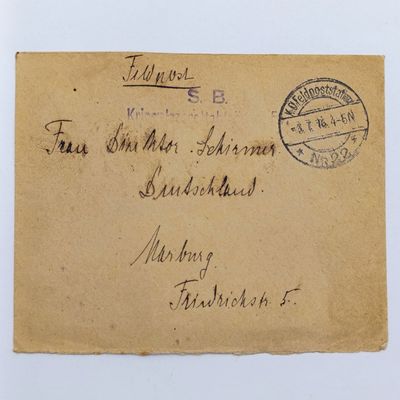 Feldpost
S. B.
K.D. Feldpoststation
-3.7.16. 4-5N
* Nr. 22 *
Frau Direktor Schirmer
Deutschland.
Marburg.
Friedrichstr 5.